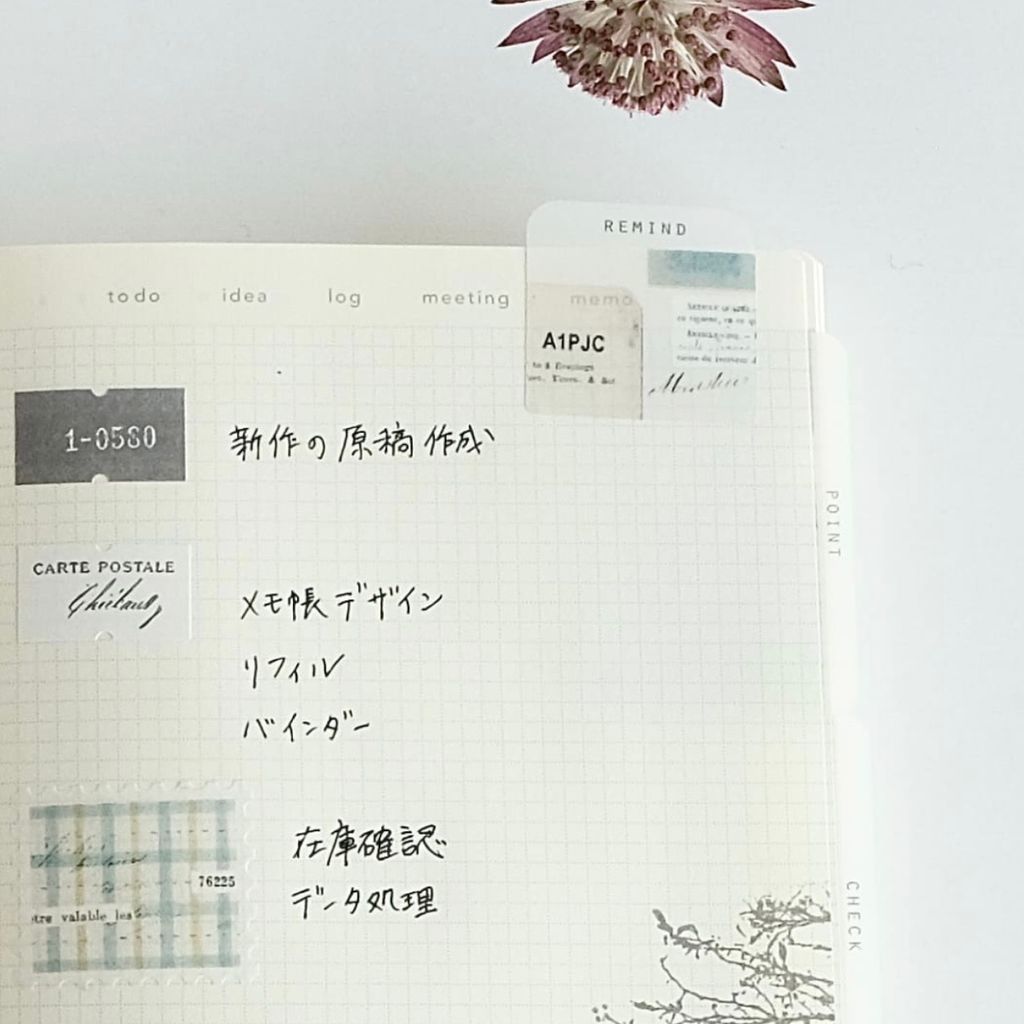 REMIND
todo idea log meeting memo
A1PJC
1-0580
新作の原稿作成
POINT
CARTE POSTALE
メモ帳デザイン
リフィル
バインダー
在庫確認
データ処理
76225
valable
CHECK